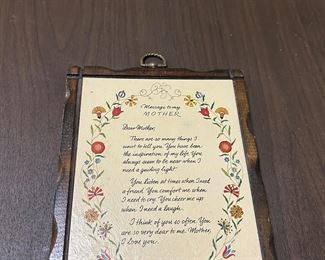 Message to my
MOTHER
Dear Mother,
There are so many things I
want to tell you. You have been
the inspiration of my life. You
always seem to be near when I
need a guiding light.
You listen at times when I need
a friend. You comfort me when
I need to cry. You cheer me up
when I need a laugh.
I think of you so often. You
are so very dear to me. Mother,
I love you.